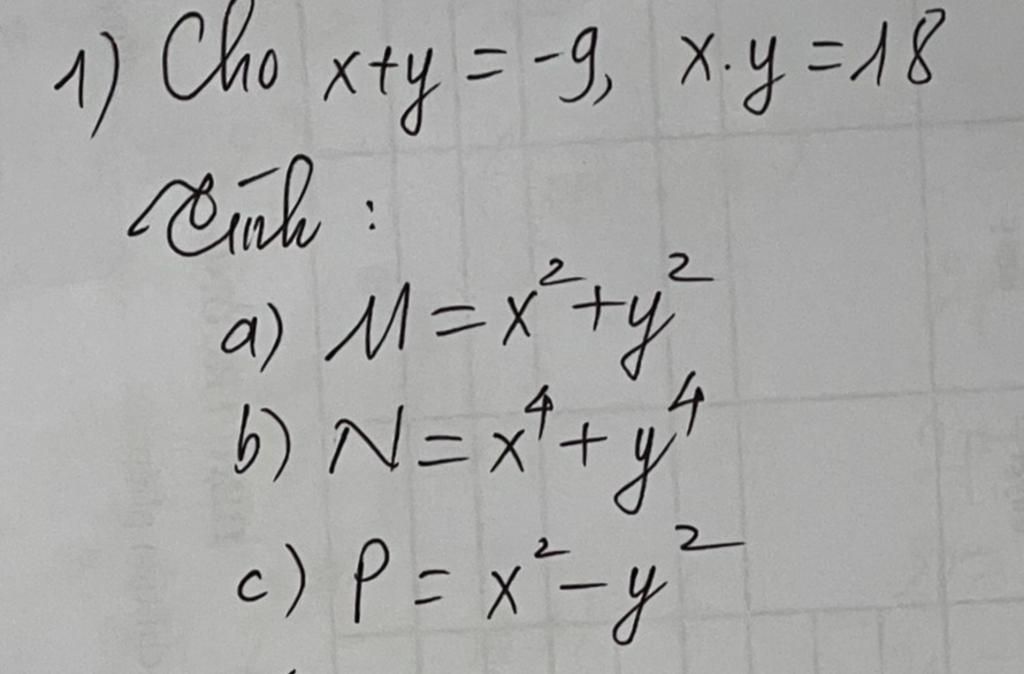 1) Cho x+y = -9, x.y = 18
Tính :
a) M = x² + y²
b) N = x⁴ + y⁴
c) P = x² - y²